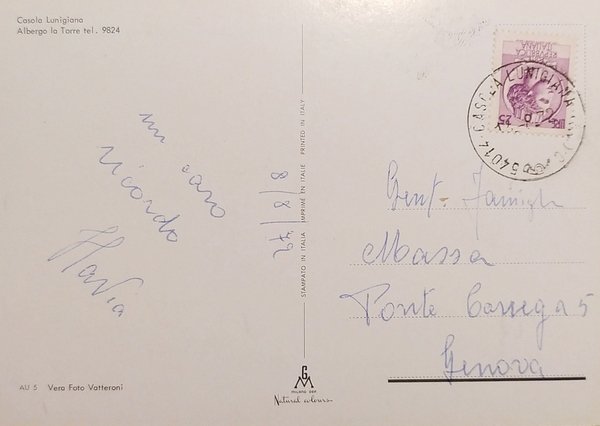 Casola Lunigiana
Albergo la Torre tel. 9824
un caro
ricordo
Flavia
8/8/72
STAMPATO IN ITALIA IMPRIMÉ EN ITALIE PRINTED IN ITALY
Gent. Famiglia
Massa
Ponte Carrega 5
Genova
54014 CASOLA LUNIGIANA
AU 5 Vera Foto Vatteroni
GM
Natural colours